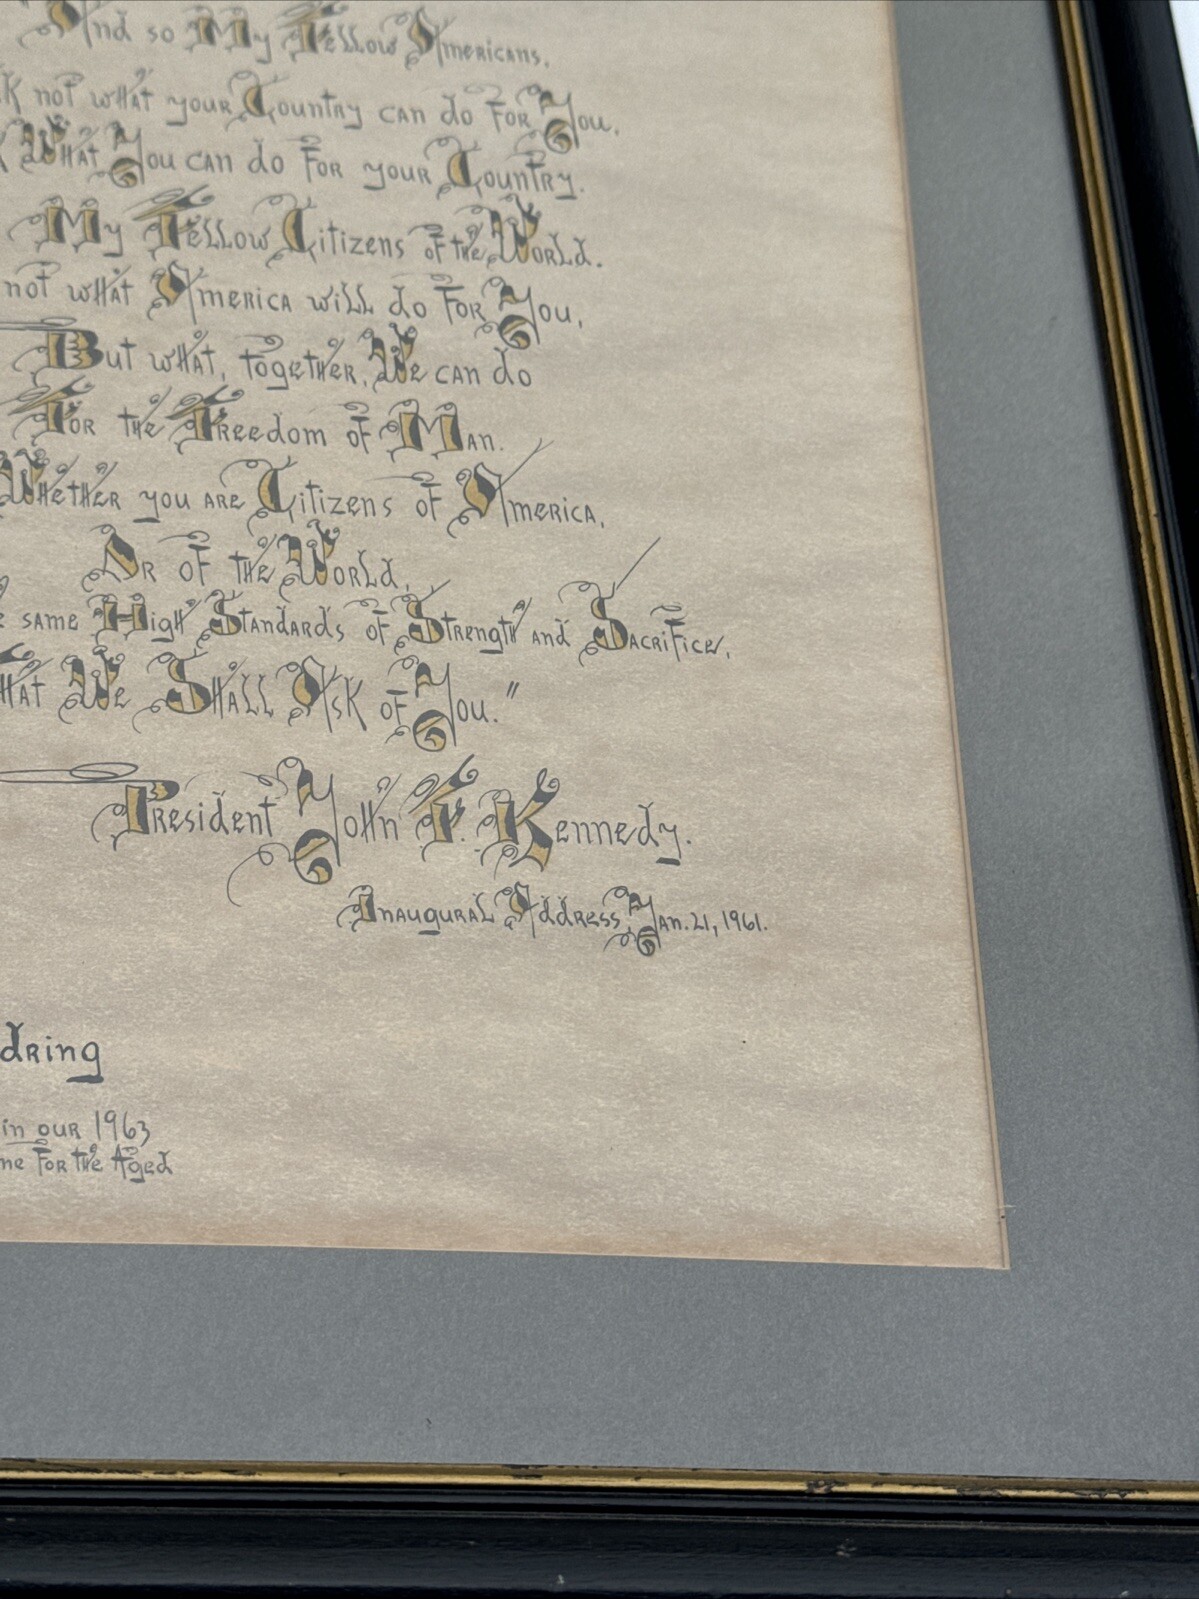 "And so My Fellow Americans.
k not what your Country can do for You.
k What You can do for your Country.
My Fellow Citizens of the World.
not what America will do for You,
But what, together, We can do
For the Freedom of Man.
Whether you are Citizens of America,
Or of the World,
e same High Standards of Strength and Sacrifice,
hat We Shall Ask of You."
President John F. Kennedy.
Inaugural Address, Jan. 21, 1961.
dring
in our 1963
me for the Aged